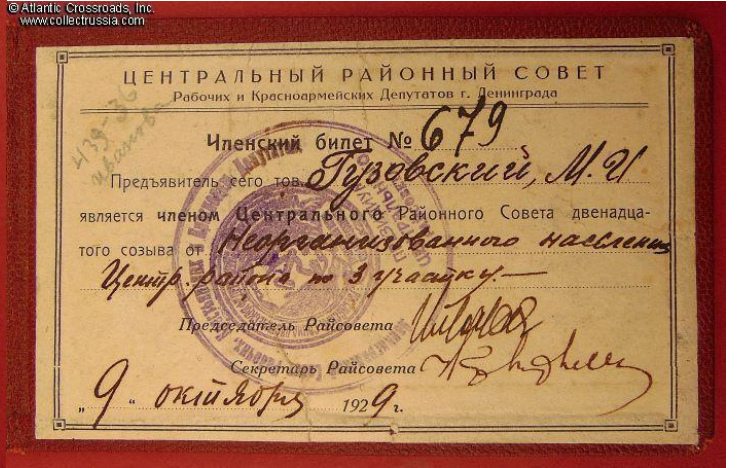 © Atlantic Crossroads, Inc.
www.collectrussia.com
ЦЕНТРАЛЬНЫЙ РАЙОННЫЙ СОВЕТ
Рабочих и Красноармейских Депутатов г. Ленинграда
439-36
Членский билет № 679
Предъявитель сего тов. Гузовский, М. И
является членом Центрального Районного Совета двенадца-
того созыва от Неорганизованного населения
Центр. района по 3 участку.—
Председатель Райсовета
Секретарь Райсовета
„9" октября 1929 г.